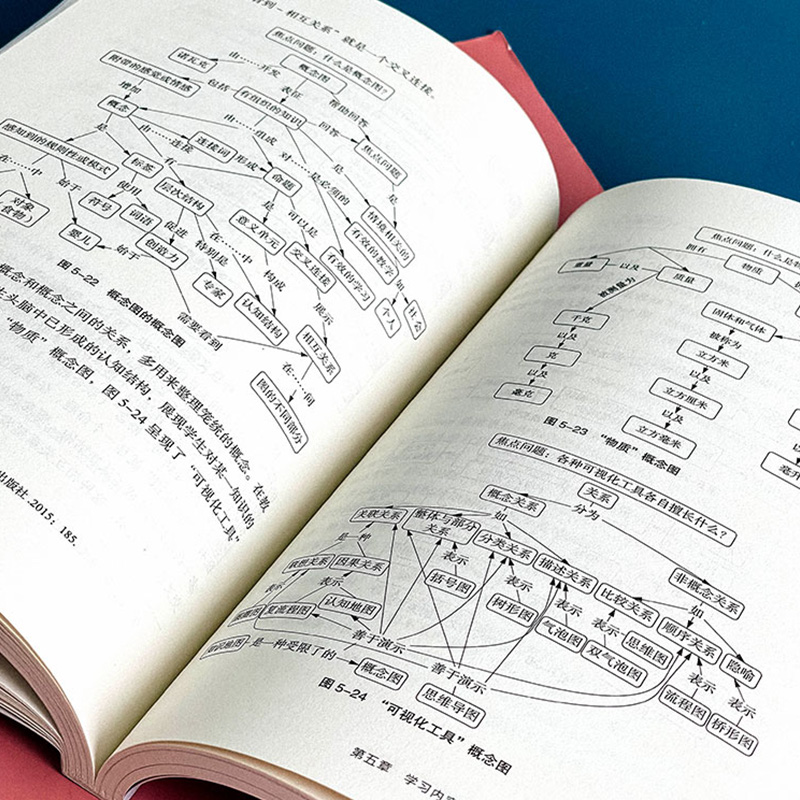 看到“相互关系”就是一个交叉连接。
焦点问题：什么是概念图？
概念图
诺瓦克
由……开发
表征
帮助回答
附带的感觉或情感
包括
有组织的知识
回答
焦点问题
增加
概念
由……连接
连接词
形成
由……组成
对……是必须的
是
是
感知到的规则性或模式
是
标签
有
层次结构
命题
情境相关的
在……中
始于
使用
符号
词语
促进
特别是
在……中
是
可以是
有效的教学
对象
食物）
婴儿
始于
创造力
专家
意义单元
交叉连接
有效的学习
如
个人
社会
构成
认知结构
展示
需要看到
相互关系
在……间
图的不同部分
图 5-22 概念图的概念图
概念和概念之间的关系，多用来整理笼统的概念。在教
头脑中已形成的认知结构，展现学生对某一知识的
“物质”概念图，图 5-24 呈现了“可视化工具”
出版社. 2015：185.
焦点问题：什么是物
拥有
物质
重量
以及
质量
被测量为
千克
以及
克
以及
毫克
固体和气体
被称为
立方米
以及
立方厘米
以及
立方毫米
毫升
图 5-23 “物质”概念图
焦点问题：各种可视化工具各自擅长什么？
关系
分为
概念关系
如
非概念关系
如
关联关系
整体与部分关系
分类关系
描述关系
比较关系
顺序关系
隐喻
是一种
联想关系
因果关系
表示
表示
表示
括号图
表示
树形图
表示
气泡图
表示
双气泡图
思维图
表示
流程图
表示
桥形图
复流程图
认知地图
善于演示
善于演示
是一种受限了的
概念图
思维导图
图 5-24 “可视化工具”概念图
第五章 学习内